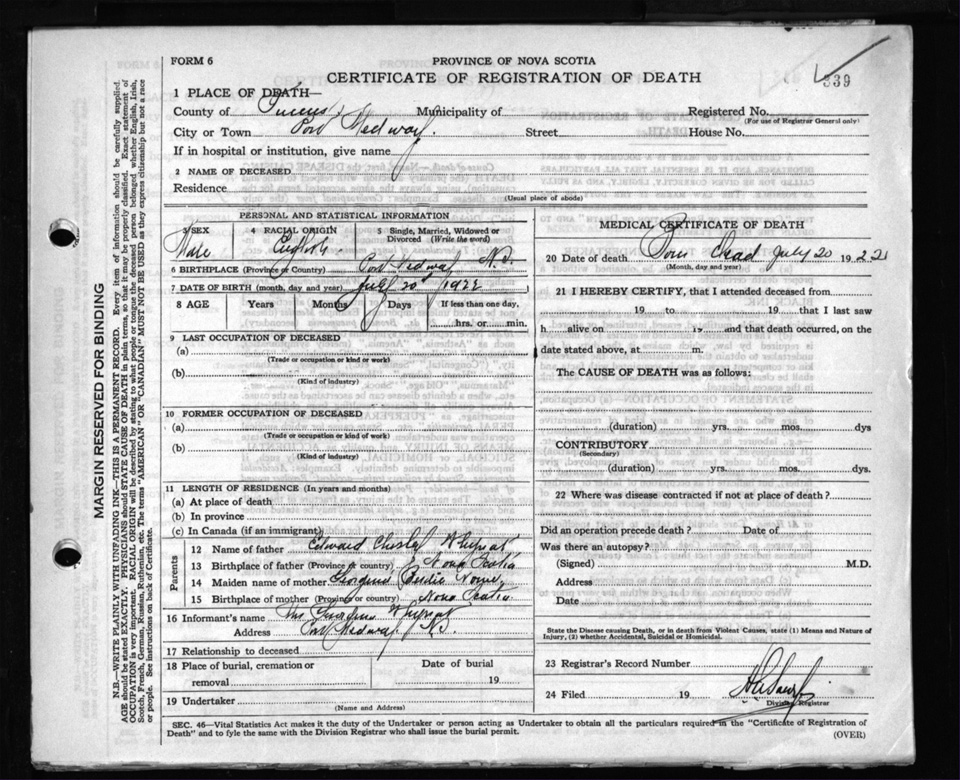 FORM 6
PROVINCE OF NOVA SCOTIA
CERTIFICATE OF REGISTRATION OF DEATH
339
1 PLACE OF DEATH—
County of Queens Municipality of Registered No.
(For use of Registrar General only)
City or Town Port Medway. Street House No.
If in hospital or institution, give name
2 NAME OF DECEASED
Residence
(Usual place of abode)
PERSONAL AND STATISTICAL INFORMATION
3 SEX 4 RACIAL ORIGIN 5 Single, Married, Widowed or Divorced (Write the word)
Male English
6 BIRTHPLACE (Province or Country) Port Medway N.S.
7 DATE OF BIRTH (month, day and year) July 20 1922
8 AGE Years Months Days If less than one day,
hrs. or min.
9 LAST OCCUPATION OF DECEASED
(a)
(Trade or occupation or kind or work)
(b)
(Kind of industry)
10 FORMER OCCUPATION OF DECEASED
(a)
(Trade or occupation or kind of work)
(b)
(Kind of industry)
11 LENGTH OF RESIDENCE (In years and months)
(a) At place of death
(b) In province
(c) In Canada (if an immigrant)
Parents
12 Name of father Edward
13 Birthplace of father (Province or country) Nova Scotia
14 Maiden name of mother
15 Birthplace of mother (Province or country) Nova Scotia
16 Informant's name
Address Port Medway. N.S.
17 Relationship to deceased
18 Place of burial, cremation or Date of burial
removal 19
19 Undertaker
(Name and Address)
MEDICAL CERTIFICATE OF DEATH
20 Date of death Born dead July 20 1922
(Month, day and year)
21 I HEREBY CERTIFY, that I attended deceased from
19 to 19 that I last saw
h alive on 19 and that death occurred, on the
date stated above, at m.
The CAUSE OF DEATH was as follows:
(duration) yrs. mos. dys
CONTRIBUTORY
(Secondary)
(duration) yrs. mos. dys.
22 Where was disease contracted if not at place of death?
Did an operation precede death? Date of
Was there an autopsy?
(Signed) M.D.
Address
Date
State the Disease causing Death, or in death from Violent Causes, state (1) Means and Nature of
Injury, (2) whether Accidental, Suicidal or Homicidal.
23 Registrar's Record Number
24 Filed 19
Division Registrar
SEC. 46—Vital Statistics Act makes it the duty of the Undertaker or person acting as Undertaker to obtain all the particulars required in the "Certificate of Registration of
Death" and to fyle the same with the Division Registrar who shall issue the burial permit.
(OVER)
MARGIN RESERVED FOR BINDING
N.B.—WRITE PLAINLY WITH UNFADING INK—THIS IS A PERMANENT RECORD. Every item of information should be carefully supplied.
AGE should be stated EXACTLY. PHYSICIANS should STATE CAUSE OF DEATH in plain terms, so that it may be properly classified. Exact statement of
OCCUPATION is very important. RACIAL ORIGIN will be described by stating to what people or tongue the deceased person belonged whether English, Irish,
Scotch, French, German, Russian, Ruthenian, etc. The terms "AMERICAN" OR "CANADIAN" MUST NOT BE USED as they express citizenship but not a race
or people. See instructions on back of Certificate.